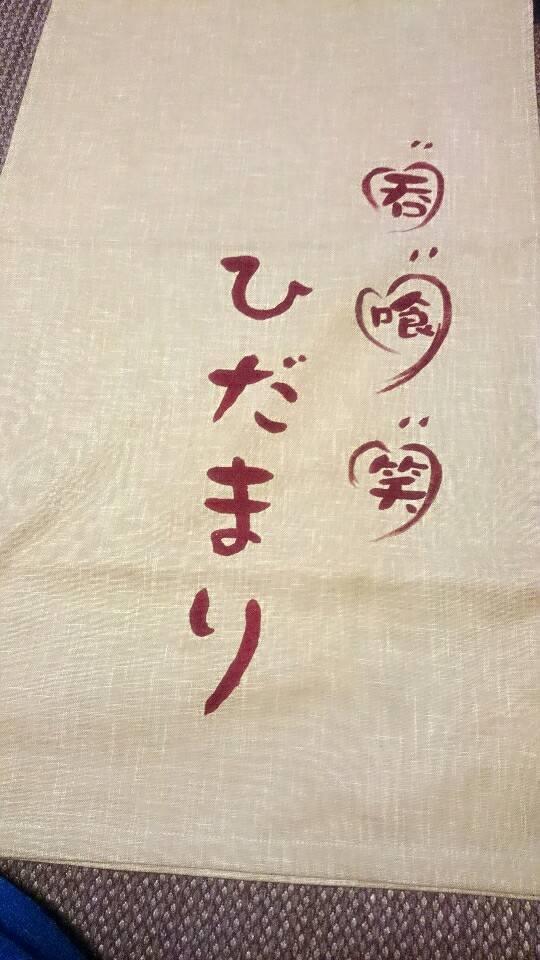 呑喰笑
ひだまり